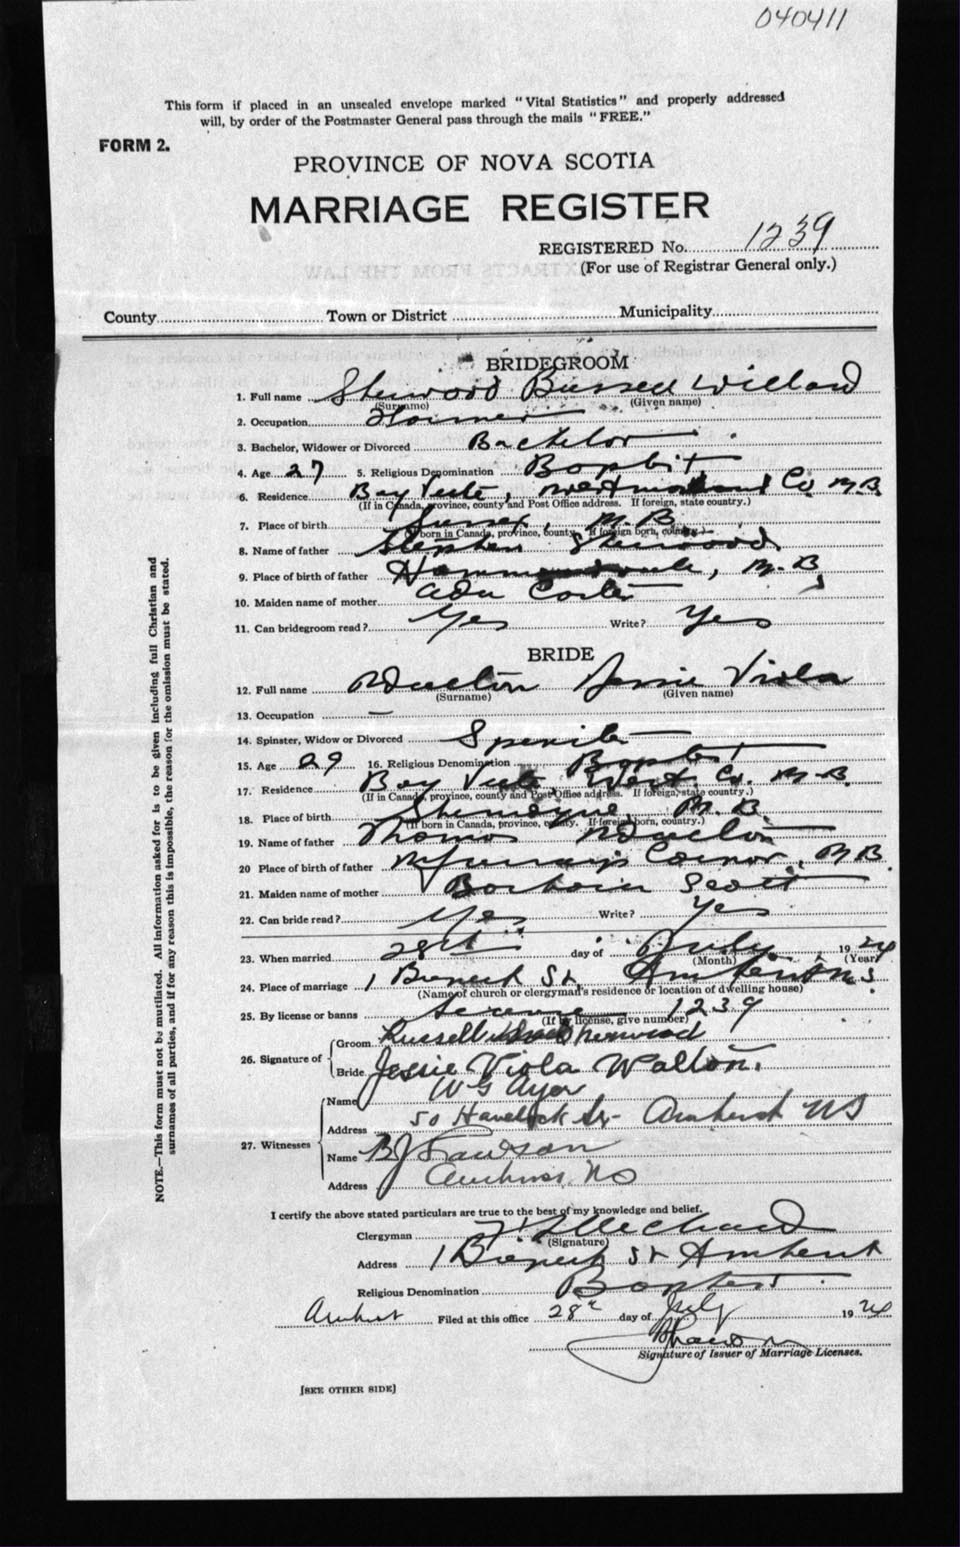 040411
This form if placed in an unsealed envelope marked "Vital Statistics" and properly addressed
will, by order of the Postmaster General pass through the mails "FREE."
FORM 2.
PROVINCE OF NOVA SCOTIA
MARRIAGE REGISTER
REGISTERED No. 1239
(For use of Registrar General only.)
County Town or District Municipality
BRIDEGROOM
1. Full name Sherwood Russell Willard
(Surname) (Given name)
2. Occupation Farmer
3. Bachelor, Widower or Divorced Bachelor
4. Age 27 5. Religious Denomination Baptist
6. Residence Bay Verte, Westmorland Co N.B
(If in Canada, province, county and Post Office address. If foreign, state country.)
7. Place of birth Sussex, N.B.
(If born in Canada, province, county. If foreign born, country.)
8. Name of father Stephen Sherwood
9. Place of birth of father N.B,
10. Maiden name of mother Ada
11. Can bridegroom read? Yes Write? Yes
BRIDE
12. Full name Walton Jessie Viola
(Surname) (Given name)
13. Occupation —
14. Spinster, Widow or Divorced Spinster
15. Age 29 16. Religious Denomination Baptist
17. Residence Bay Verte, West. Co. N.B.
(If in Canada, province, county and Post Office address. If foreign, state country.)
18. Place of birth N.B.
(If born in Canada, province, county. If foreign born, country.)
19. Name of father Thomas Walton
20 Place of birth of father Murrays Corner, N.B
21. Maiden name of mother Scott
22. Can bride read? Yes Write? Yes
23. When married 28th day of July 1924
(Month) (Year)
24. Place of marriage 1 St. Amherst N.S
(Name of church or clergyman's residence or location of dwelling house)
25. By license or banns License 1239
(If by license, give number)
26. Signature of Groom Russell Sherwood
Bride Jessie Viola Walton.
27. Witnesses Name W G Ayer
Address 50 Havelock St- Amherst NS
Name BJ Lawson
Address Amherst, NS
I certify the above stated particulars are true to the best of my knowledge and belief.
Clergyman
(Signature)
Address 1 St Amherst
Religious Denomination Baptist
Amherst Filed at this office 28 day of July 1924
BJ Lawson
Signature of Issuer of Marriage Licenses.
[SEE OTHER SIDE]
NOTE.—This form must not be mutilated. All information asked for is to be given including full Christian and
surnames of all parties, and if for any reason this is impossible, the reason for the omission must be stated.